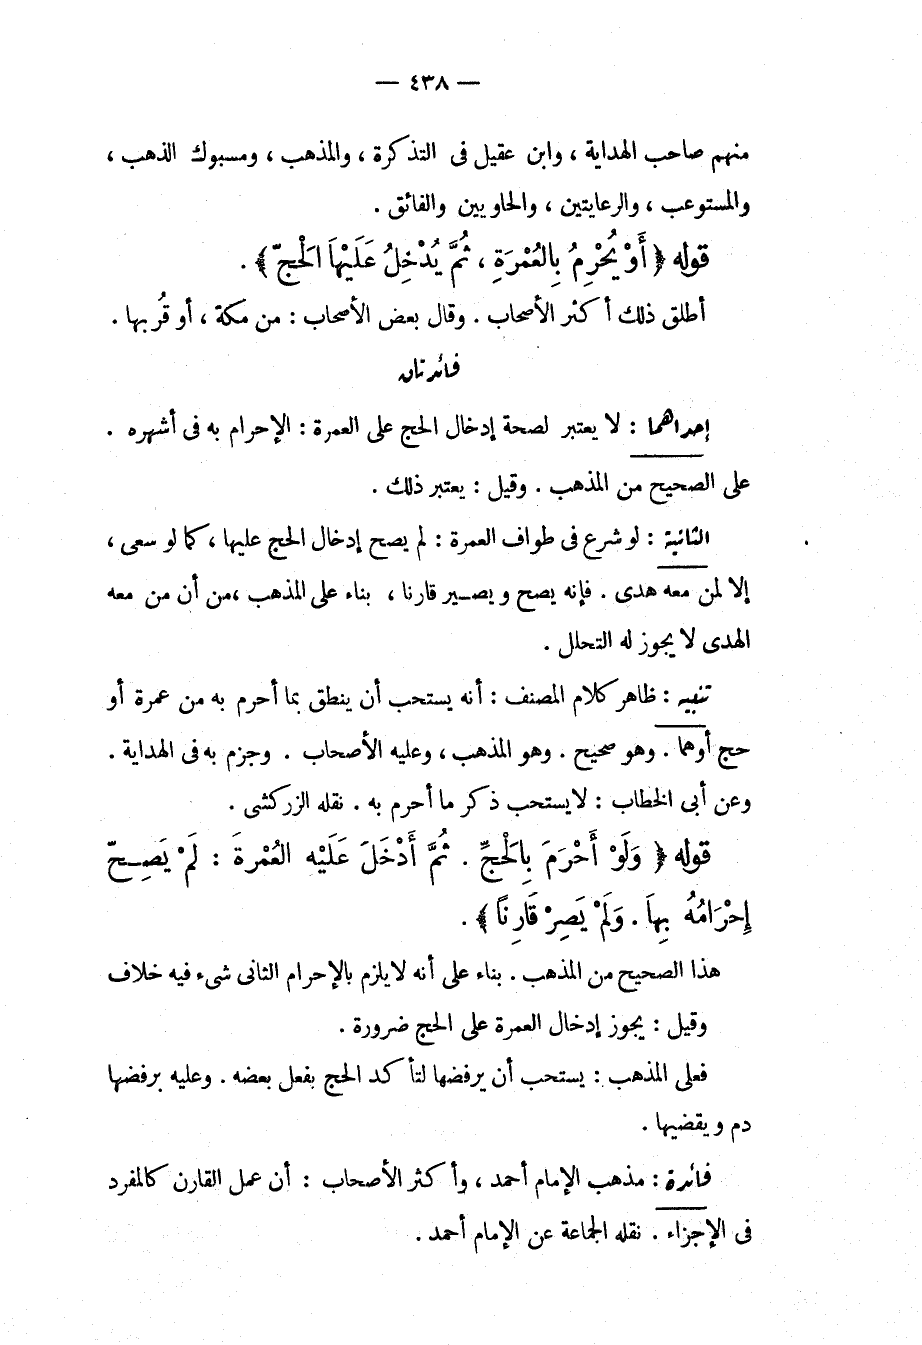 — ٤٣٨ —
منهم صاحب الهداية ، وابن عقيل فى التذكرة ، والمذهب ، ومسبوك الذهب ،
والمستوعب ، والرعايتين ، والحاويين والفائق .
قوله ﴿ أَوْ يُحْرِمُ بِالعُمْرَةِ ، ثُمَّ يُدْخِلُ عَلَيْهَا الْحَجَّ ﴾ .
أطلق ذلك أكثر الأصحاب . وقال بعض الأصحاب : من مكة ، أو قُربها .
فائدتان
إحداهما : لا يعتبر لصحة إدخال الحج على العمرة : الإحرام به فى أشهره .
على الصحيح من المذهب . وقيل : يعتبر ذلك .
الثانية : لو شرع فى طواف العمرة : لم يصح إدخال الحج عليها ، كما لو سعى ،
إلا لمن معه هدى . فإنه يصح ويصير قارنا ، بناء على المذهب ،من أن من معه
الهدى لا يجوز له التحلل .
تنبيه : ظاهر كلام المصنف : أنه يستحب أن ينطق بما أحرم به من عمرة أو
حج أوهما . وهو صحيح . وهو المذهب ، وعليه الأصحاب . وجزم به فى الهداية .
وعن أبى الخطاب : لايستحب ذكر ما أحرم به . نقله الزركشى .
قوله ﴿ وَلَوْ أَحْرَمَ بِالْحَجِّ . ثُمَّ أَدْخَلَ عَلَيْه العُمْرةَ : لَمْ يَصِحّ
إِحْرَامُهُ بِهَا . وَلَمْ يَصِرْ قَارِنًا ﴾ .
هذا الصحيح من المذهب . بناء على أنه لايلزم بالإحرام الثانى شىء فيه خلاف
وقيل : يجوز إدخال العمرة على الحج ضرورة .
فعلى المذهب : يستحب أن يرفضها لتأكد الحج بفعل بعضه . وعليه برفضها
دم ويقضيها .
فائدة : مذهب الإمام أحمد ، وأكثر الأصحاب : أن عمل القارن كالمفرد
فى الإجزاء . نقله الجماعة عن الإمام أحمد .